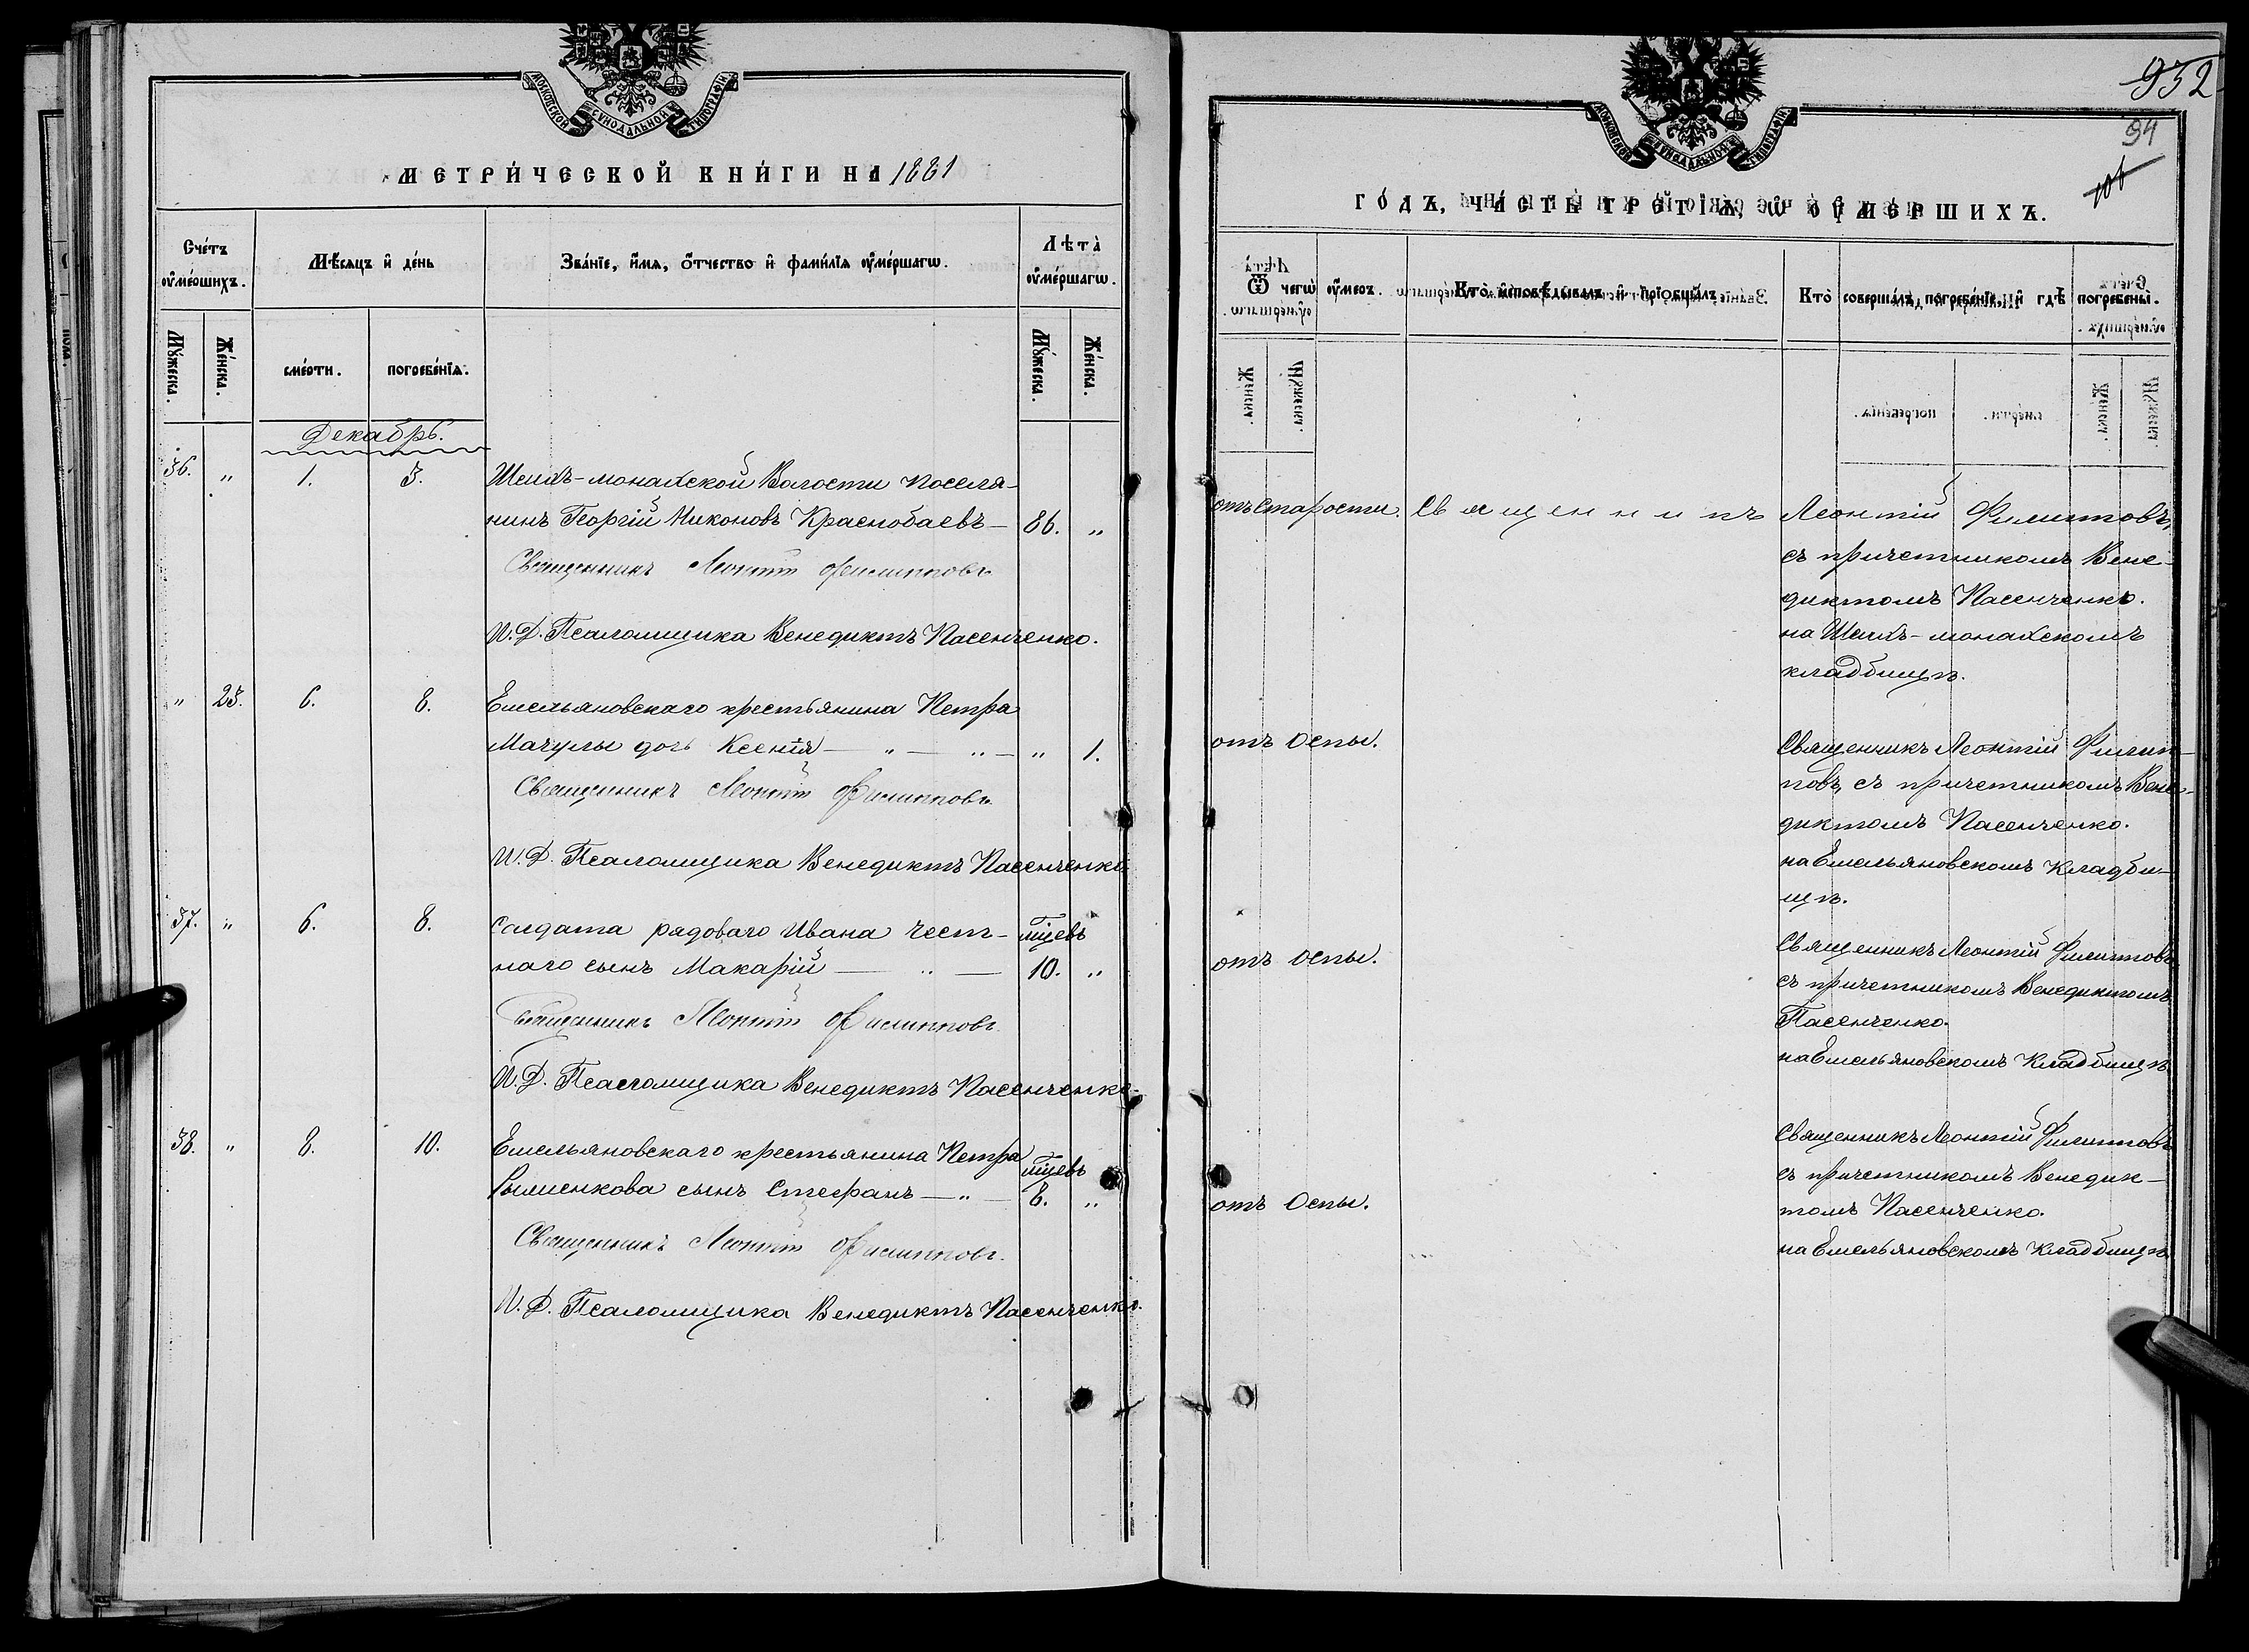 МОСКОВСКОЙ СѴНОДАЛЬНОЙ ТИПОГРАФІИ
МЕТРИ́ЧЕСКОЙ КНИ́ГИ НА 1881
Сче́тъ ᲂу҆ме́ршихъ.
Мѣ́сяцъ и҆ де́нь
Зва́нїе, и҆́мѧ, ѻ҆́тчество и҆ фами́лїѧ ᲂу҆ме́ршагѡ.
Лѣта̀ ᲂу҆ме́ршагѡ.
Мꙋ́жеска.
Же́нска.
сме́рти.
погребе́нїѧ.
Мꙋ́жеска.
Же́нска.
Декабрь.
36. " 1. 3. Шейхъ-монахской Волости поселя-
нинъ Георгій Никоновъ Краснобаевъ — 86. "
Священникъ Леонтій Филипповъ
И. Д. Псаломщика Венедиктъ Пасенченко.
" 25. 6. 8. Емельяновскаго крестьянина Петра
Мачулы дочь Ксенія — " — " — " 1.
Священникъ Леонтій Филипповъ
И. Д. Псаломщика Венедиктъ Пасенченко
37. " 6. 8. Солдата рядоваго Ивана Чест- мцевъ
наго сынъ Макарій — " — 10. "
Священникъ Леонтій Филипповъ
И. Д. Псаломщика Венедиктъ Пасенченко
38. " 8. 10. Емельяновскаго крестьянина Петра мцевъ
сынъ Стефанъ — " — 8. "
Священникъ Леонтій Филипповъ.
И. Д. Псаломщика Венедиктъ Пасенченко.
932
94
106
МОСКОВСКОЙ СѴНОДАЛЬНОЙ ТИПОГРАФІИ
ГО́ДЪ, ЧА́СТЬ ТРЕ́ТЇѦ, Ѡ҆ ОУ҆МЕ́РШИХЪ.
Ѿ чегѡ̀ ᲂу҆́меръ.
Кто̀ и҆сповѣ́дывалъ и҆ прїѡбща́лъ.
Кто̀ соверша́лъ погребе́нїе, и҆ гдѣ̀ погребены̀.
отъ старости. Священникъ Леонтій Филипповъ,
съ причетникомъ Вене-
диктомъ Пасенченко.
на Шейхъ-монахскомъ
кладбищѣ.
отъ Оспы. Священникъ Леонтій Филип-
повъ, съ причетникомъ Вене-
диктомъ Пасенченко.
на Емельяновскомъ Кладби-
щѣ.
отъ Оспы. Священникъ Леонтій Филипповъ
съ причетникомъ Венедиктомъ
Пасенченко.
на Емельяновскомъ Кладбищѣ
отъ Оспы. Священникъ Леонтій Филипповъ
съ причетникомъ Венедик-
томъ Пасенченко.
на Емельяновскомъ Кладбищѣ